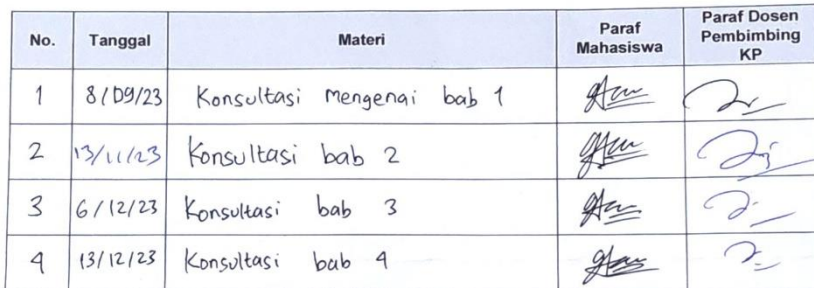 No. Tanggal Materi Paraf Mahasiswa Paraf Dosen Pembimbing KP
1 8/09/23 Konsultasi mengenai bab 1
2 13/11/23 Konsultasi bab 2
3 6/12/23 Konsultasi bab 3
4 13/12/23 Konsultasi bab 4